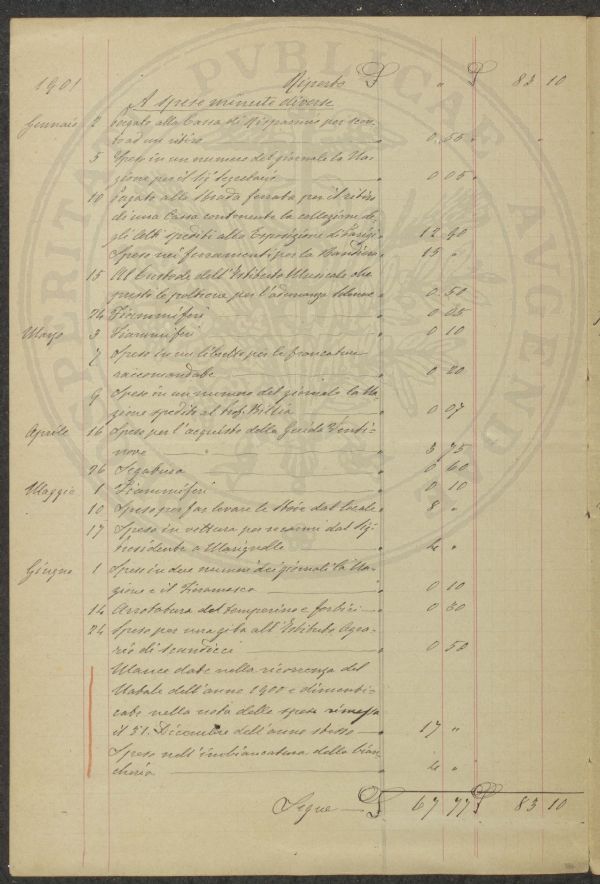 1901 Riporto £ " £ 83 10
A spese minute diverse
Gennaio 2 pagate alla Cassa di Risparmio per
ad un ritiro " 0,55 " "
5 Spese in un numero del giornale la Na-
zione per il Sig Segretario " 0 05 "
10 pagate alla strada ferrata per il ritiro
di una Cassa contenente la collezione de-
gli Atti spediti alla Esposizione di Parigi " 12 90
Spese nei ferramenti per la Bandiera " 15 "
15 Al Custode dell'Istituto Musicale che
le poltrone per l'adunanza Solenne " 0 50
24 Fiammiferi " 0 05
Marzo 3 Fiammiferi " 0 10
7 Spese in un libretto per le francature
raccomandate " 0 20
9 Spese in un numero del giornale la Na
zione spedito al Prof. " 0 07
Aprile 16 Spese per l'acquisto della Guida Venti-
nove " 3 75
26 Segatura " 0 60
Maggio 1 Fiammiferi " 0 10
10 Spese per far levare le stoie dal locale " 8 "
17 Spese in vettura per recarmi dal Sig
Presidente a Marignolle " 4 "
Giugno 1 Spese in due numeri dei giornali la Na-
zione e il Fieramosca " 0 10
14 Arrotatura del temperino e forbici " 0 30
24 Spese per una gita all'Istituto Agra-
rio di Scandicci " 0 50
Mance date nella ricorrenza del
Natale dell'anno 1900 e dimenti-
cate nella nota delle spese rimessa
il 31 Dicembre dell'anno stesso " 17 "
Spese nell'imbiancatura della bian-
cheria " 4 "
Segue £ 67 77 £ 83 10